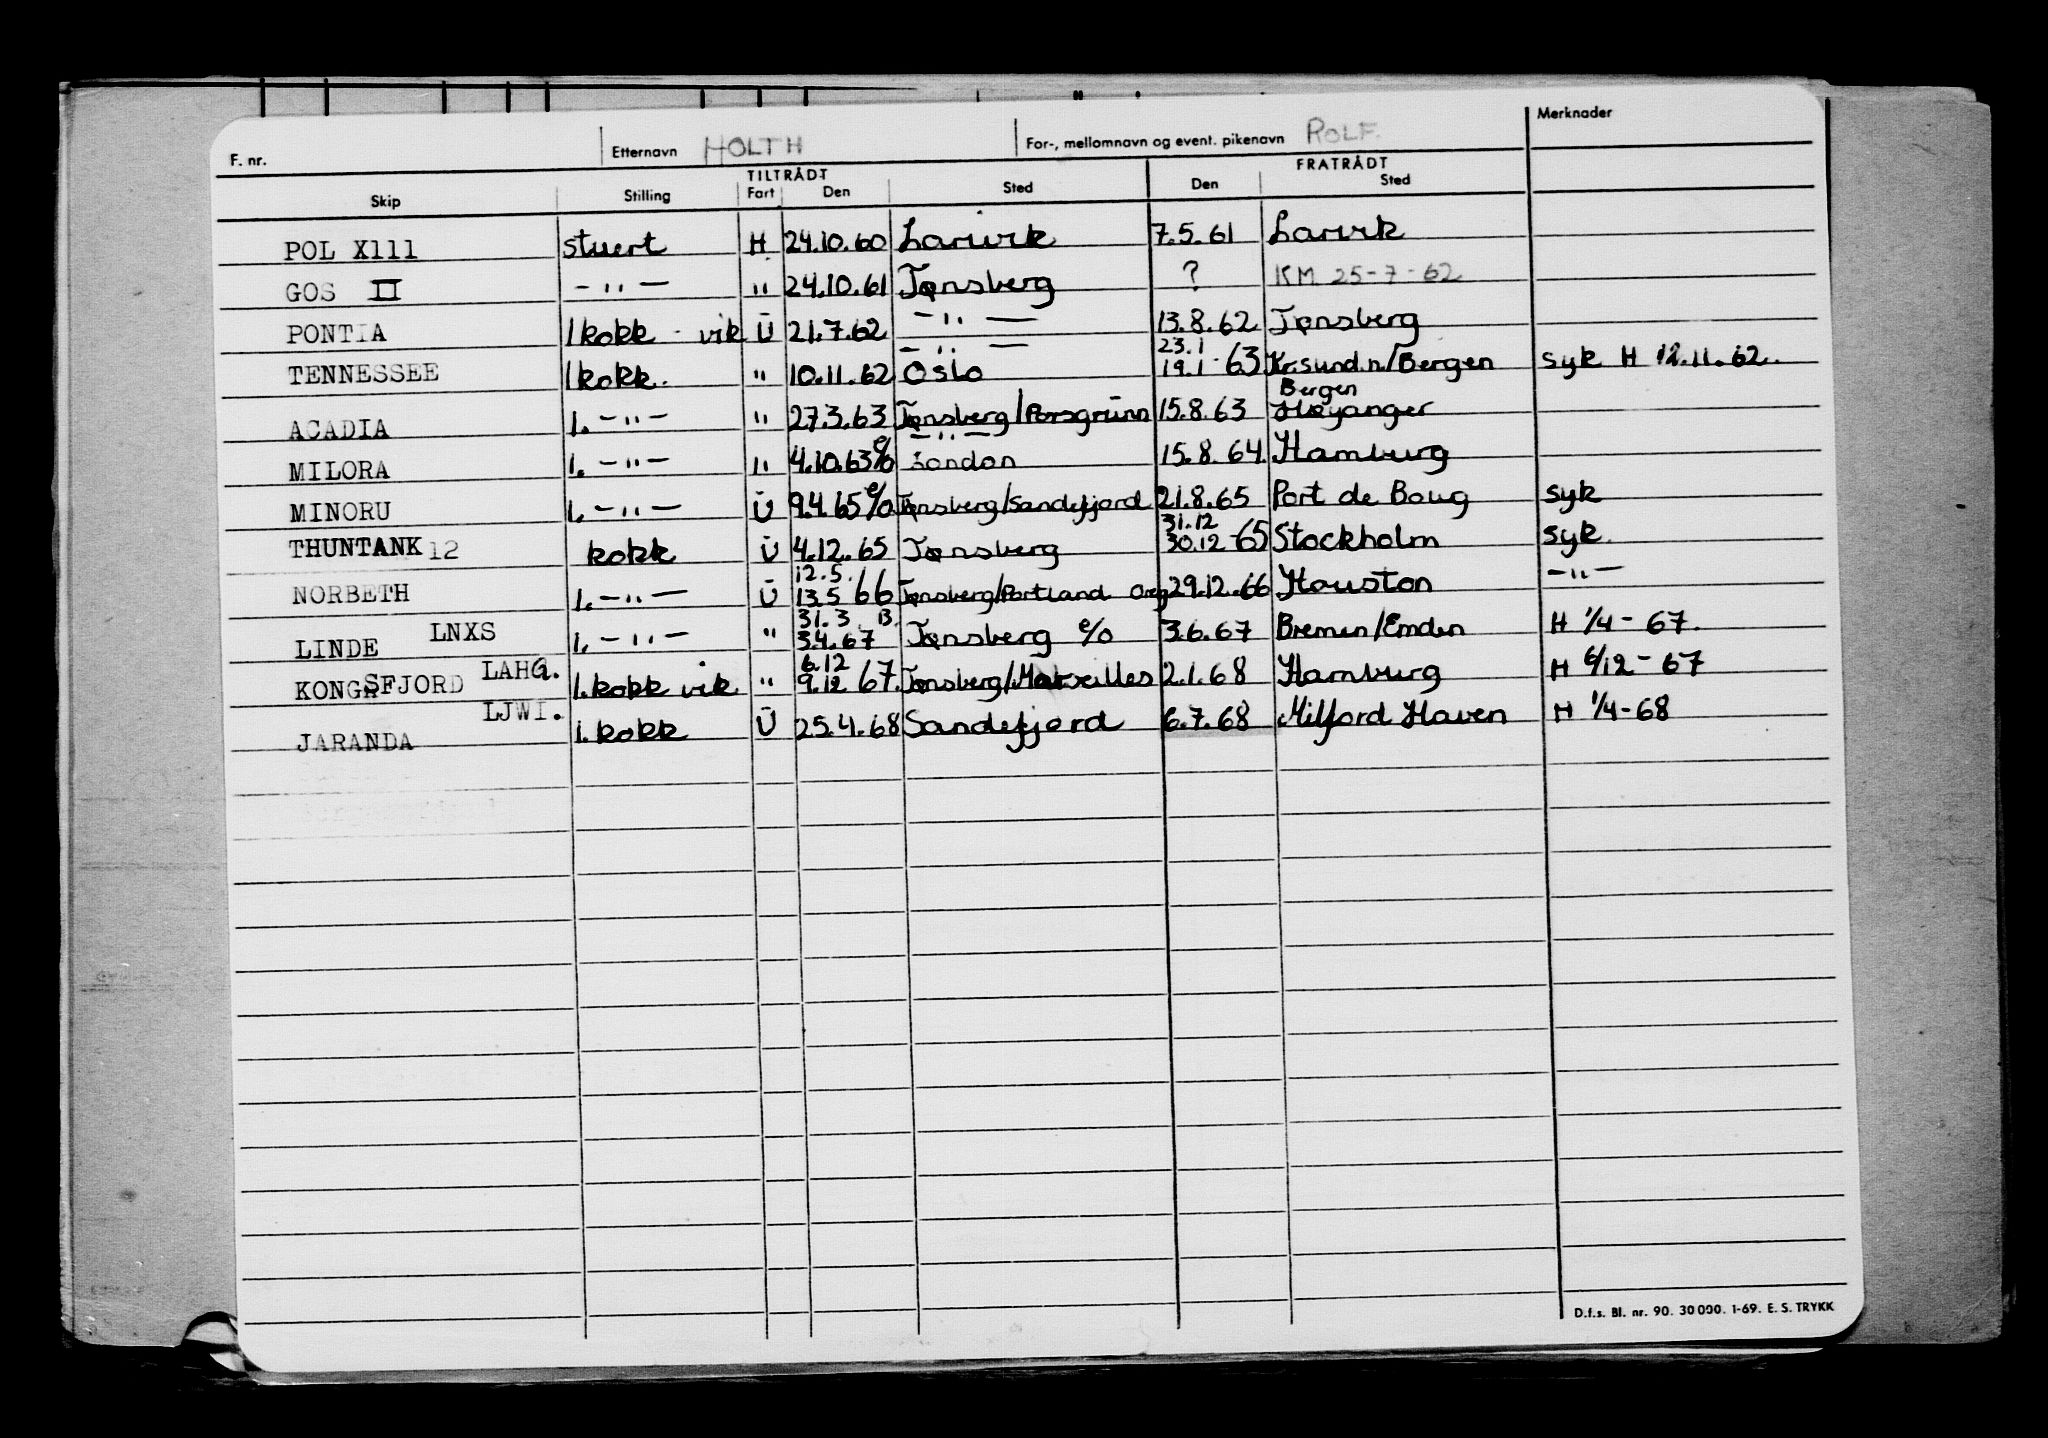 F. nr. Etternavn HOLTH For-, mellomnavn og event. pikenavn ROLF. Merknader
TILTRÅDT FRATRÅDT
Skip Stilling Fart Den Sted Den Sted
POL X111 stuert H 24.10.60 Larvik 7.5.61 Larvik
GOS II - " - " 24.10.61 Tønsberg ? KM 25-7-62
PONTIA 1 kokk - vik Ü 21.7.62 - " - 13.8.62 Tønsberg
- " - 23.1
TENNESSEE 1 kokk. " 10.11.62 Oslo 19.1-63 Kr.sund.n/Bergen syk H 12.11.62.
Bergen
ACADIA 1. - " - " 27.3.63 Tønsberg/Porsgrunn 15.8.63 Høyanger
- " -
MILORA 1. - " - " 4.10.63 e/o London 15.8.64. Hamburg
MINORU 1. - " - Ü 9.4.65 e/o Tønsberg/Sandefjord 21.8.65 Port de Boug syk
31.12
THUNTANK 12 kokk Ü 4.12.65 Tønsberg 30.12-65 Stockholm syk.
12.5.
NORBETH 1. - " - Ü 13.5 66 Tønsberg/Portland Oreg 29.12.66 Houston - " -
31.3 13.
LINDE LNXS 1. - " - " 3.4.67 Tønsberg e/o 3.6.67 Bremen/Emden H 1/4-67.
6.12
KONGSFJORD LAHG. 1. kokk vik " 9.12 67. Tønsberg/Marseilles 2.1.68 Hamburg H 6/12-67
JARANDA LJWI. 1. kokk Ü 25.4.68 Sandefjord 6.7.68 Milford Haven H 1/4-68
D.f.s. Bl. nr. 90. 30 000. 1-69. E. S. TRYKK